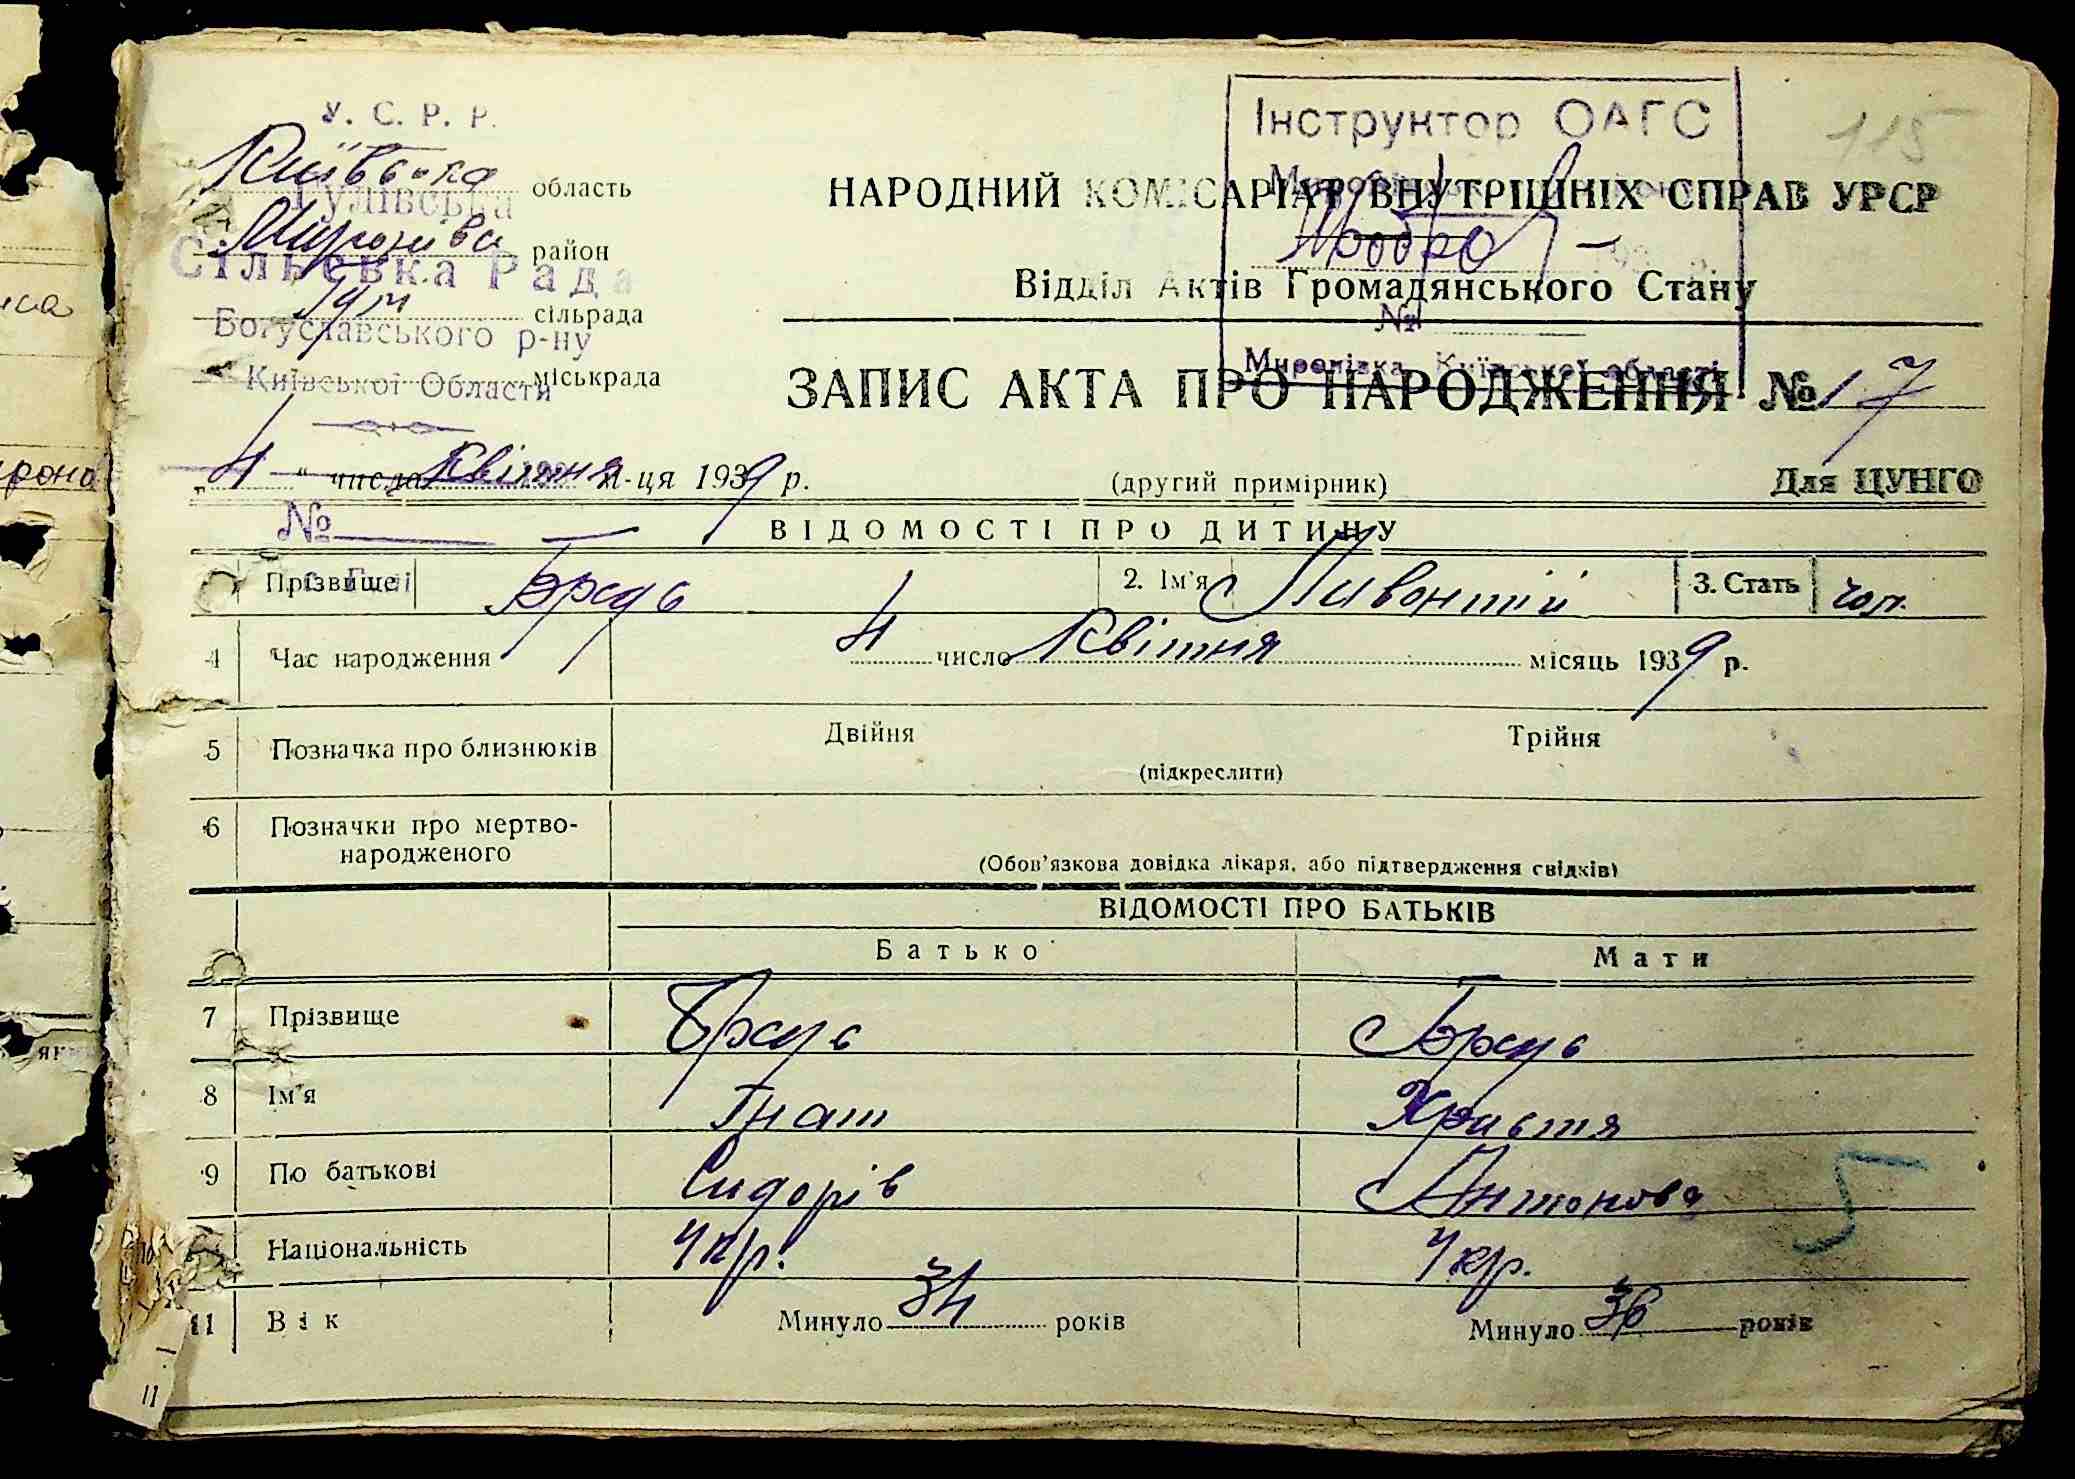 У. С. Р. Р.
Київська область
Гулівська
Миронівс район
Сільська Рада
Гул сільрада
Богуславського р-ну
міськрада
Київської Області
Інструктор ОАГС
115
НАРОДНИЙ КОМІСАРІАТ ВНУТРІШНІХ СПРАВ УРСР
Відділ Актів Громадянського Стану
№
Миронівка Київської області
ЗАПИС АКТА ПРО НАРОДЖЕННЯ № 17
„ 4 “ числа Квітня м-ця 1939 р.
(другий примірник)
Для ЦУНГО
№
ВІДОМОСТІ ПРО ДИТИНУ
Прізвище 2. Ім'я Ливонтій 3. Стать чол.
4 Час народження 4 число Квітня місяць 1939 р.
5 Позначка про близнюків Двійня Трійня
(підкреслити)
6 Позначки про мертво-
народженого
(Обов'язкова довідка лікаря, або підтвердження свідків)
ВІДОМОСТІ ПРО БАТЬКІВ
Батько Мати
7 Прізвище
8 Ім'я Гнат Христя
9 По батькові Сидорів Антонова
Національність Укр. Укр.
11 Вік Минуло 34 років Минуло 36 років
5
11